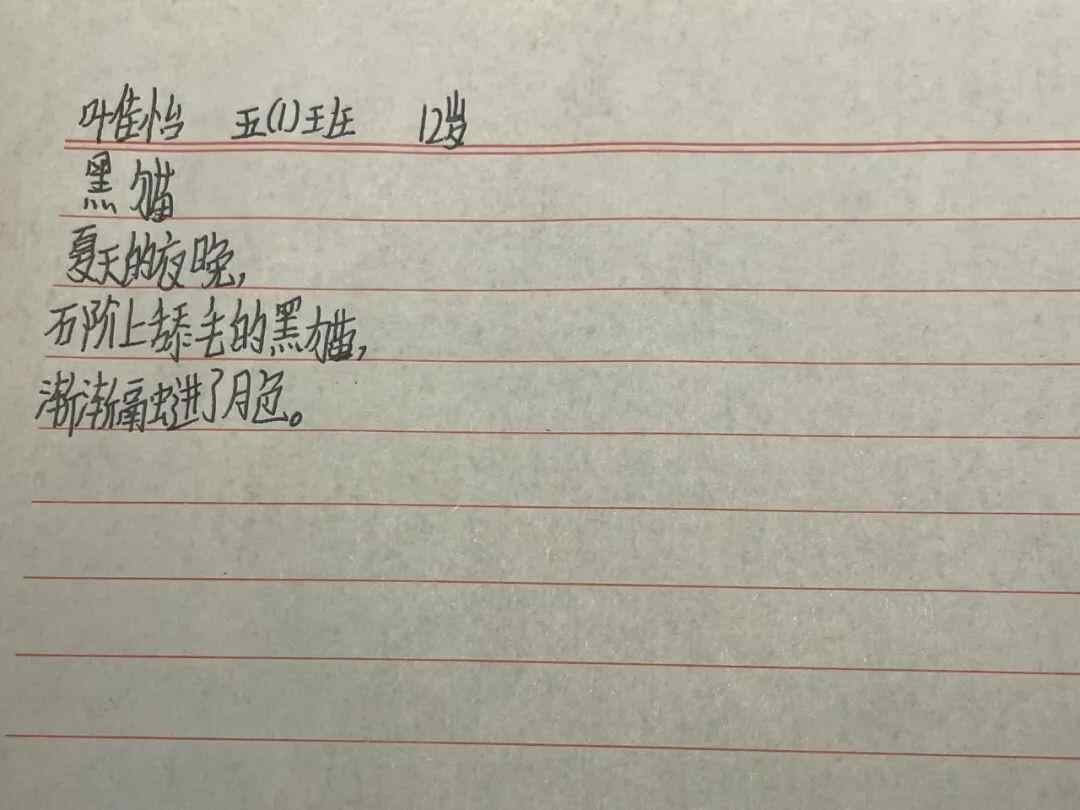 叶佳怡 五(1)班 12岁
黑猫
夏天的夜晚,
石阶上舔毛的黑猫,
渐渐融进了月色。